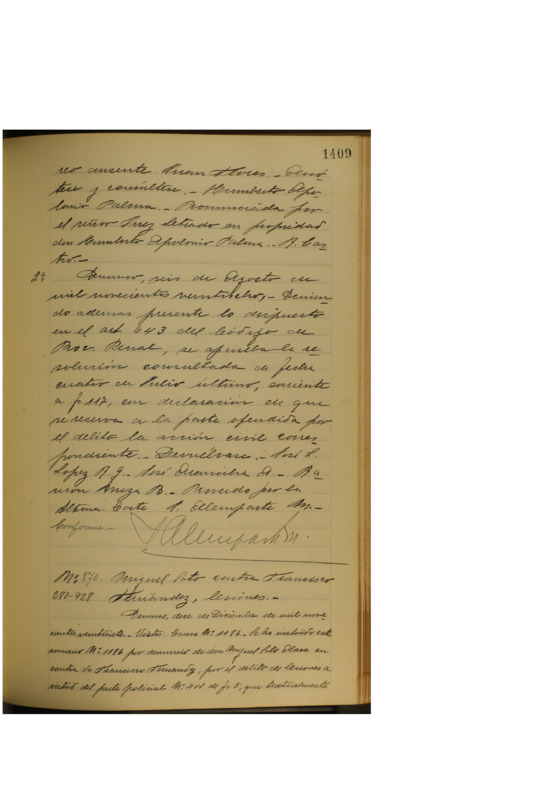 1409
reo ausente Juan Flores. - Anó-
tese y consúltese. - Humberto Apo-
lonio Palma. - Pronunciada por
el señor Juez Letrado en propiedad
don Humberto Apolonio Palma. - R. Cas-
tro. -
2ª Temuco, seis de Agosto de
mil novecientos veintiocho, - Tenien-
do ademas presente lo dispuesto
en el art 643 del Código de
Proc. Penal, se aprueba la re-
solución consultada de fecha
cuatro de Julio último, corriente
a fs 117, con declaración de que
se reserva a la parte ofendida por
el delito la acción civil corres-
pondiente. - Devuélvase. - José L.
Lopez R. J. - José A. - Ra-
món B. - Proveido por la
Iltma. Corte. A. Alemparte M. -
Conforme. -
Alemparte M.
Nº 570. Miguel Soto contra Francisco
280-928 Hernández, lesiones. -
Temuco, doce de Diciembre de mil nove-
cientos veintisiete. - Vistos. Causa Nº 1186. Se ha instruído este
sumario Nº 1186 por denuncio de don Miguel Soto en
contra de Francisco Hernandez, por el delito de lesiones a
mérito del parte policial Nº de fs 5, que textualmente